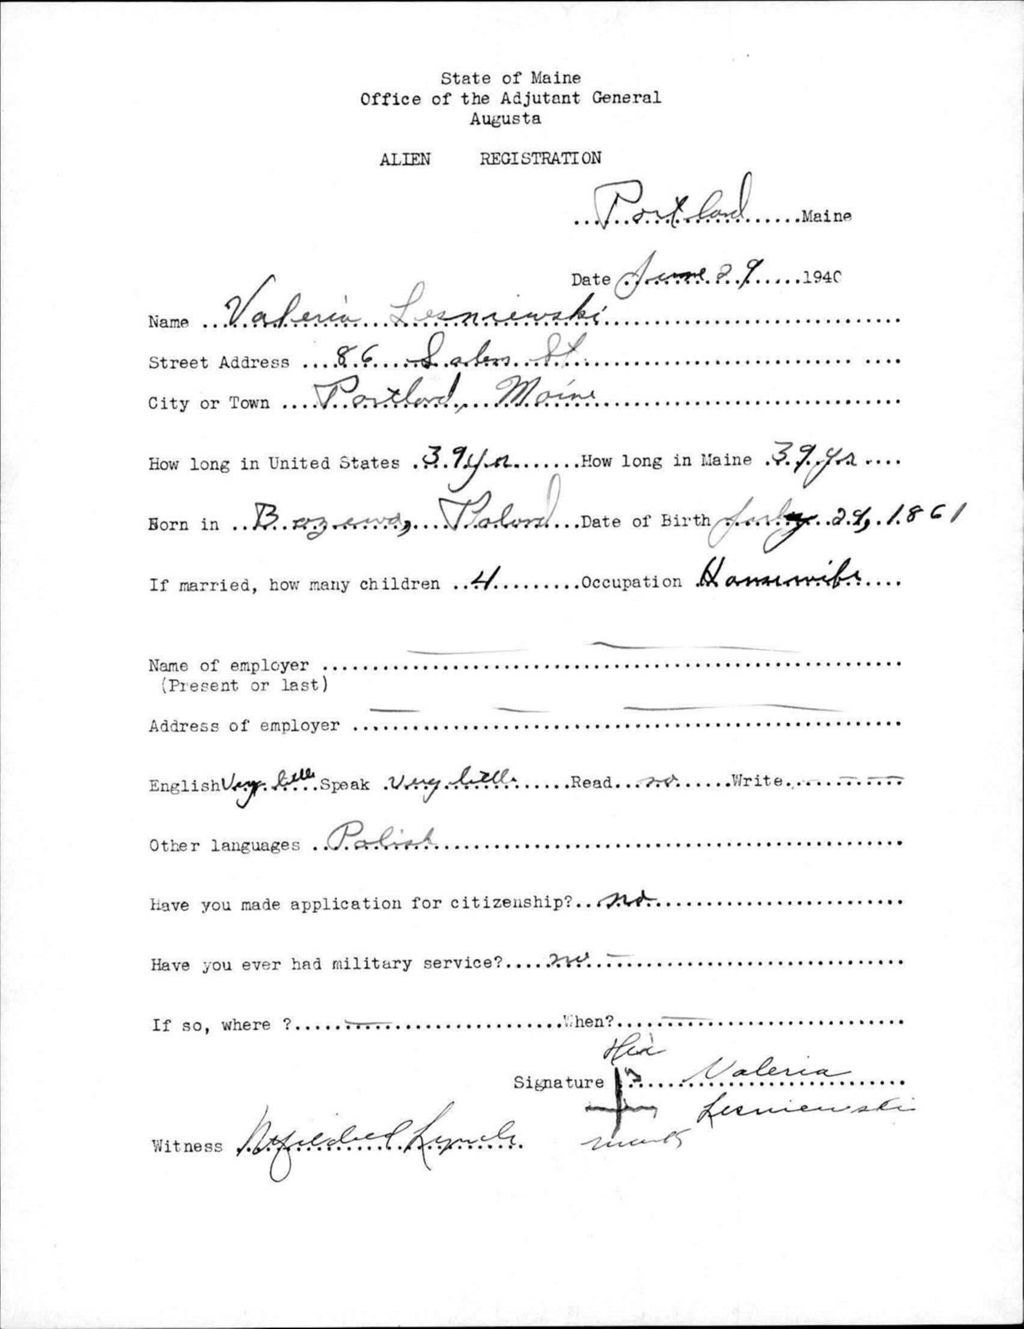 State of Maine
Office of the Adjutant General
Augusta
ALIEN REGISTRATION
Portland Maine
Date June 29 1940
Name Valeria Lesniewski
Street Address 86 Salem St
City or Town Portland, Maine
How long in United States 39 yrs How long in Maine 39 yrs
Born in Poland Date of Birth July 29, 1861
If married, how many children 4 Occupation Housewife
Name of employer
(Present or last)
Address of employer
English Very little Speak Very little Read no Write
Other languages Polish
Have you made application for citizenship? no
Have you ever had military service? no
If so, where ? When?
Her
Signature Valeria
Lesniewski
Witness Lynch mark